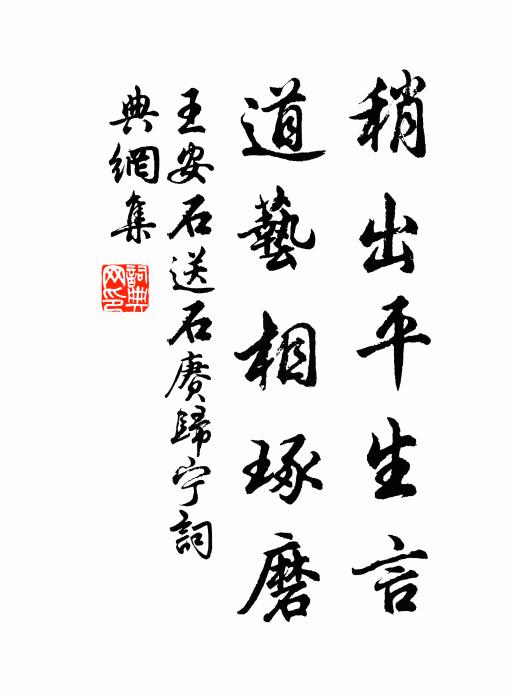 稍出平生言
道藝相琢磨
王安石送石賡歸宁詞
典網集
詞典网印